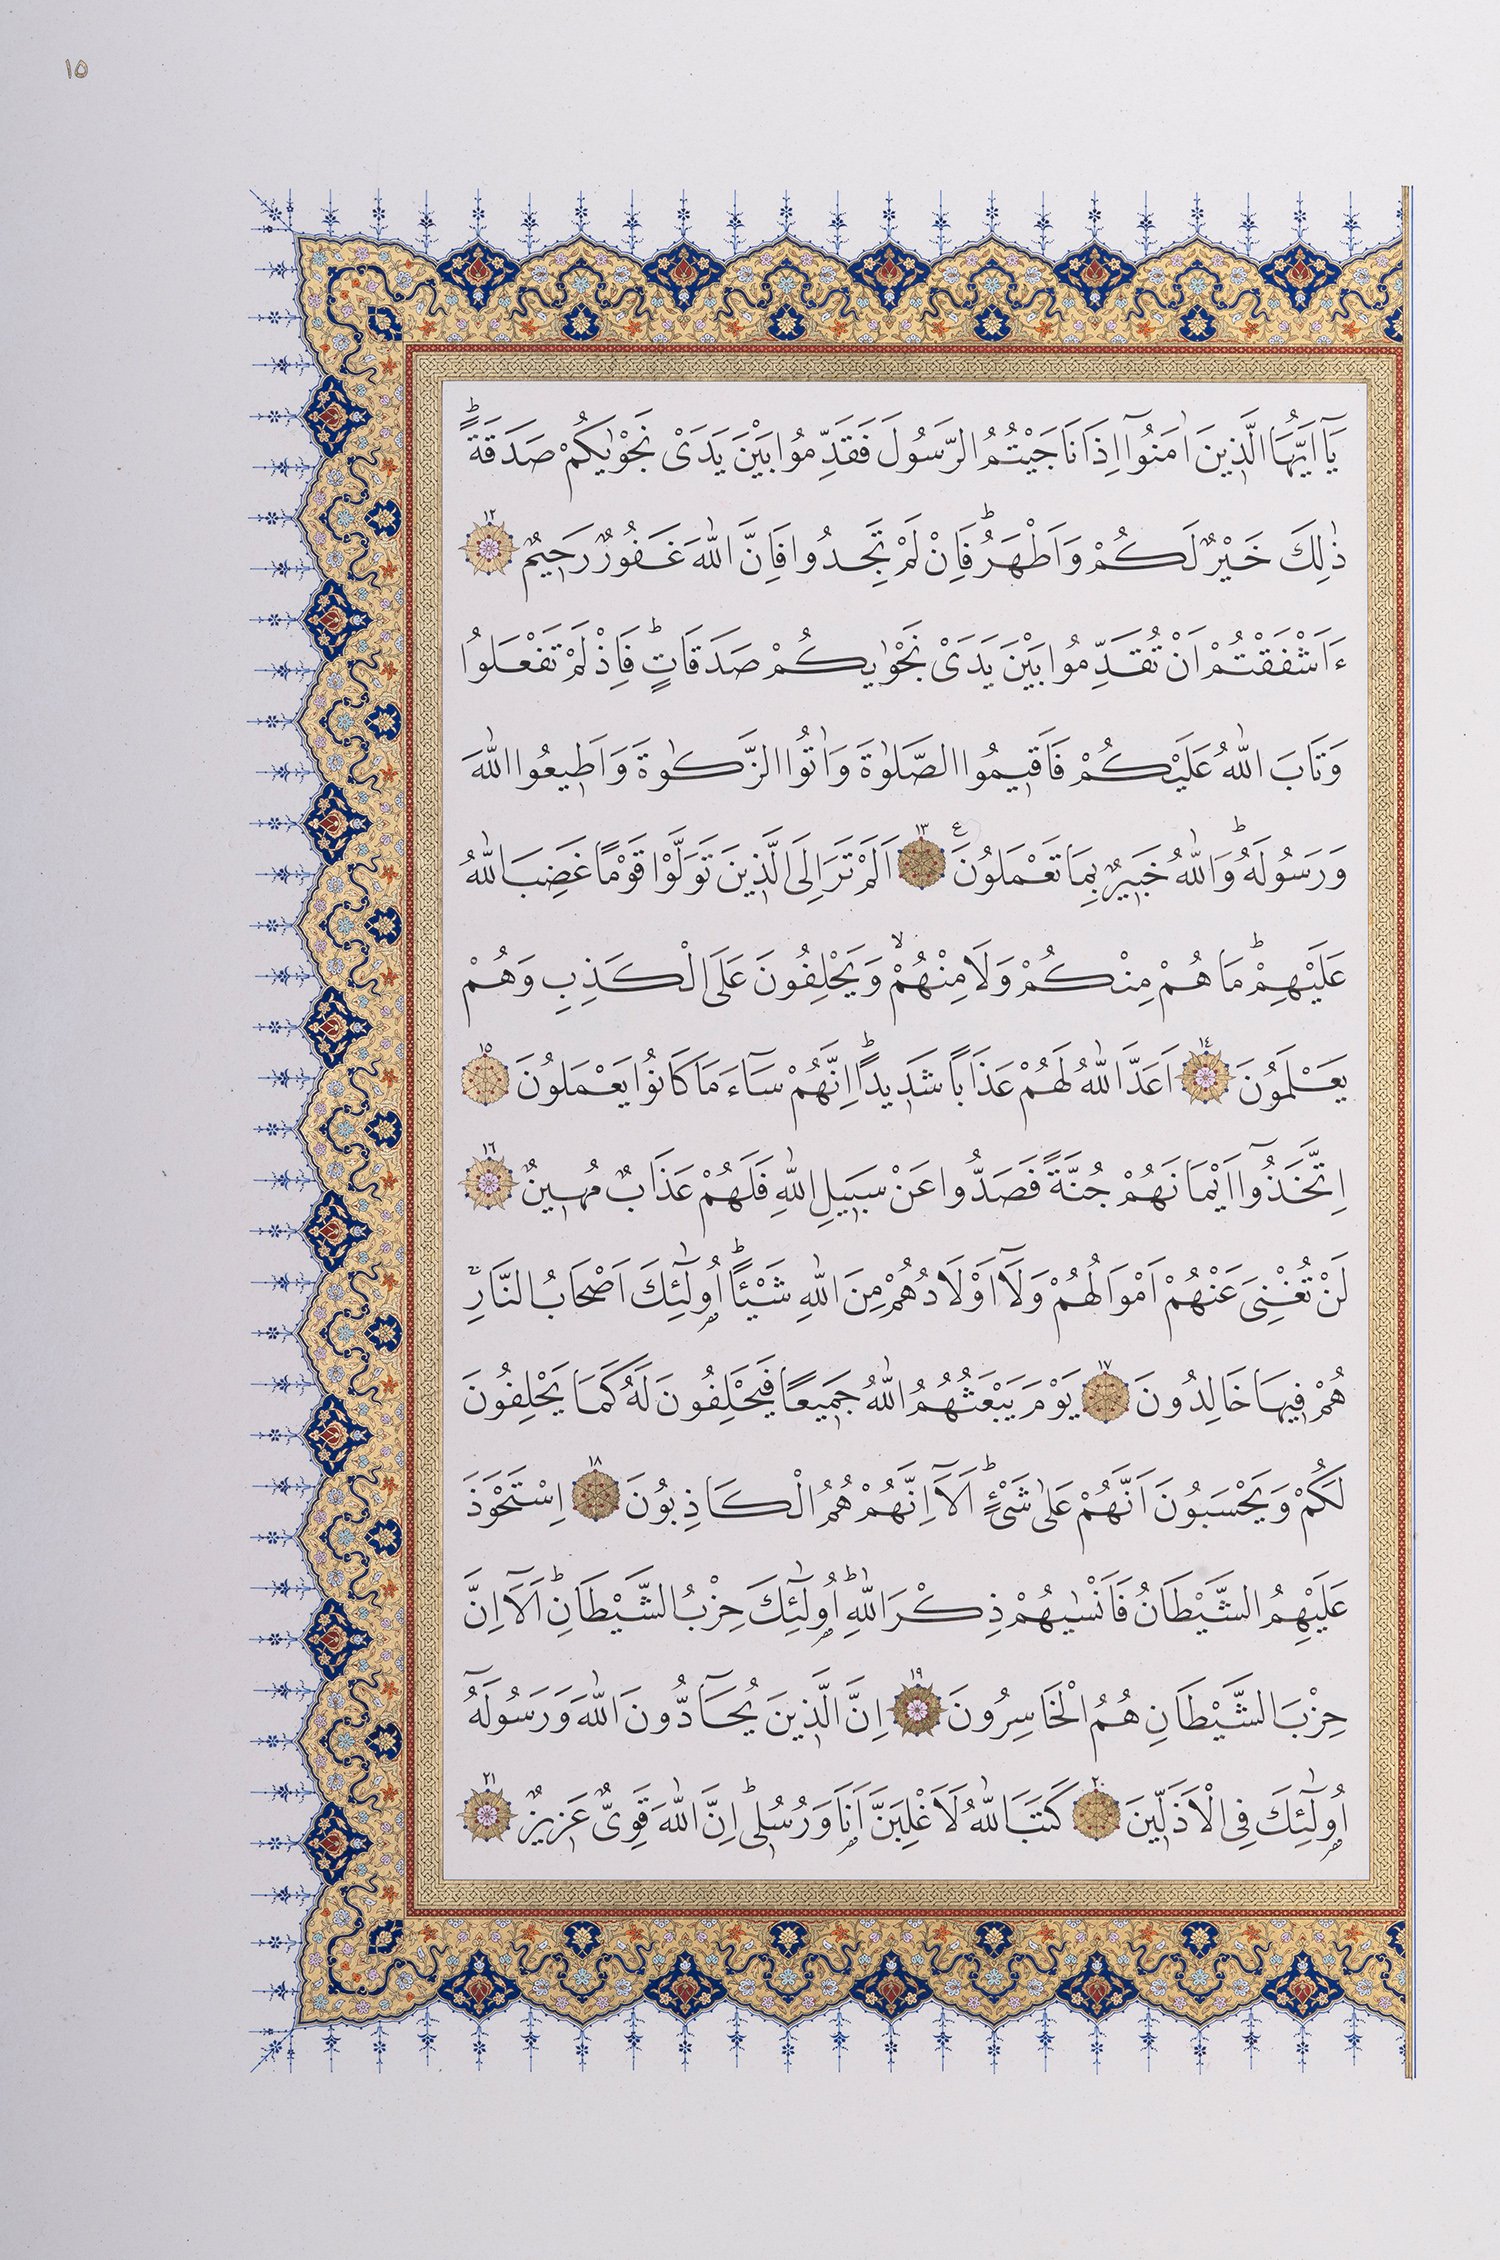 ١٥
يَٓا اَيُّهَا الَّذ۪ينَ اٰمَنُٓوا اِذَا نَاجَيْتُمُ الرَّسُولَ فَقَدِّمُوا بَيْنَ يَدَيْ نَجْوٰيكُمْ صَدَقَةًۜ
ذٰلِكَ خَيْرٌ لَكُمْ وَاَطْهَرُۜ فَاِنْ لَمْ تَجِدُوا فَاِنَّ اللّٰهَ غَفُورٌ رَح۪يمٌ ١٢
ءَاَشْفَقْتُمْ اَنْ تُقَدِّمُوا بَيْنَ يَدَيْ نَجْوٰيكُمْ صَدَقَاتٍۜ فَاِذْ لَمْ تَفْعَلُوا
وَتَابَ اللّٰهُ عَلَيْكُمْ فَاَق۪يمُوا الصَّلٰوةَ وَاٰتُوا الزَّكٰوةَ وَاَط۪يعُوا اللّٰهَ
وَرَسُولَهُۜ وَاللّٰهُ خَب۪يرٌ بِمَا تَعْمَلُونَ ع ١٣ اَلَمْ تَرَ اِلَى الَّذ۪ينَ تَوَلَّوْا قَوْمًا غَضِبَ اللّٰهُ
عَلَيْهِمْۜ مَا هُمْ مِنْكُمْ وَلَا مِنْهُمْۙ وَيَحْلِفُونَ عَلَى الْكَذِبِ وَهُمْ
يَعْلَمُونَ ١٤ اَعَدَّ اللّٰهُ لَهُمْ عَذَابًا شَد۪يدًاۜ اِنَّهُمْ سَٓاءَ مَا كَانُوا يَعْمَلُونَ ١٥
اِتَّخَذُٓوا اَيْمَانَهُمْ جُنَّةً فَصَدُّوا عَنْ سَب۪يلِ اللّٰهِ فَلَهُمْ عَذَابٌ مُه۪ينٌ ١٦
لَنْ تُغْنِيَ عَنْهُمْ اَمْوَالُهُمْ وَلَٓا اَوْلَادُهُمْ مِنَ اللّٰهِ شَيْـًٔاۜ اُو۬لٰٓئِكَ اَصْحَابُ النَّارِۚ
هُمْ ف۪يهَا خَالِدُونَ ١٧ يَوْمَ يَبْعَثُهُمُ اللّٰهُ جَم۪يعًا فَيَحْلِفُونَ لَهُ كَمَا يَحْلِفُونَ
لَكُمْ وَيَحْسَبُونَ اَنَّهُمْ عَلٰى شَيْءٍۜ اَلَٓا اِنَّهُمْ هُمُ الْكَاذِبُونَ ١٨ اِسْتَحْوَذَ
عَلَيْهِمُ الشَّيْطَانُ فَاَنْسٰيهُمْ ذِكْرَ اللّٰهِۜ اُو۬لٰٓئِكَ حِزْبُ الشَّيْطَانِۜ اَلَٓا اِنَّ
حِزْبَ الشَّيْطَانِ هُمُ الْخَاسِرُونَ ١٩ اِنَّ الَّذ۪ينَ يُحَٓادُّونَ اللّٰهَ وَرَسُولَهُٓ
اُو۬لٰٓئِكَ فِي الْاَذَلّ۪ينَ ٢٠ كَتَبَ اللّٰهُ لَاَغْلِبَنَّ اَنَا۬ وَرُسُل۪يۜ اِنَّ اللّٰهَ قَوِيٌّ عَز۪يزٌ ٢١